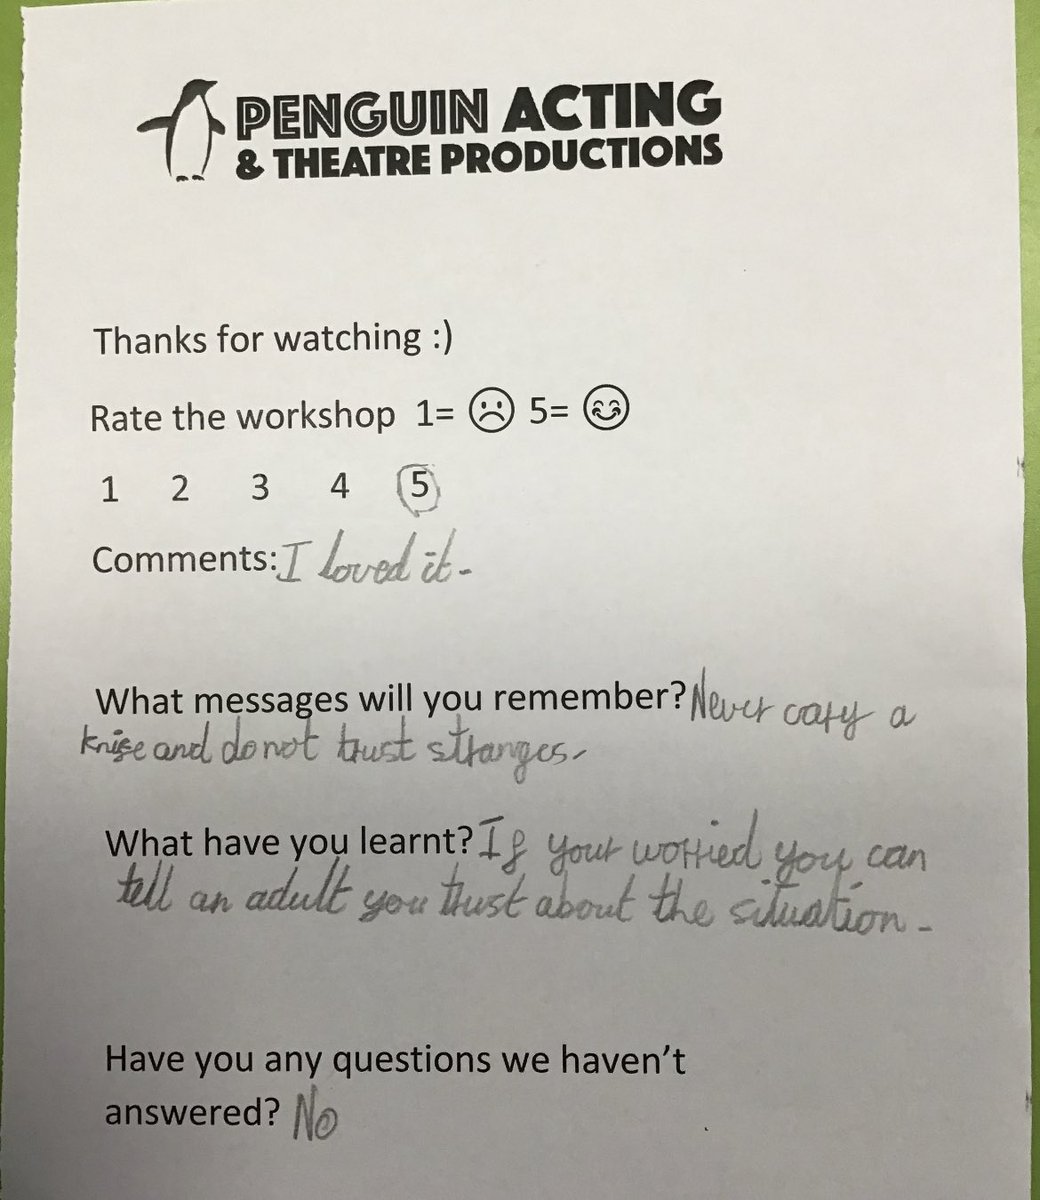 PENGUIN ACTING
& THEATRE PRODUCTIONS
Thanks for watching :)
Rate the workshop 1= ☹ 5= 😊
1 2 3 4 5
Comments: I loved it.
What messages will you remember? Never cary a
knife and do not trust stranges.
What have you learnt? If your worried you can
tell an adult you trust about the situation.
Have you any questions we haven't
answered? No